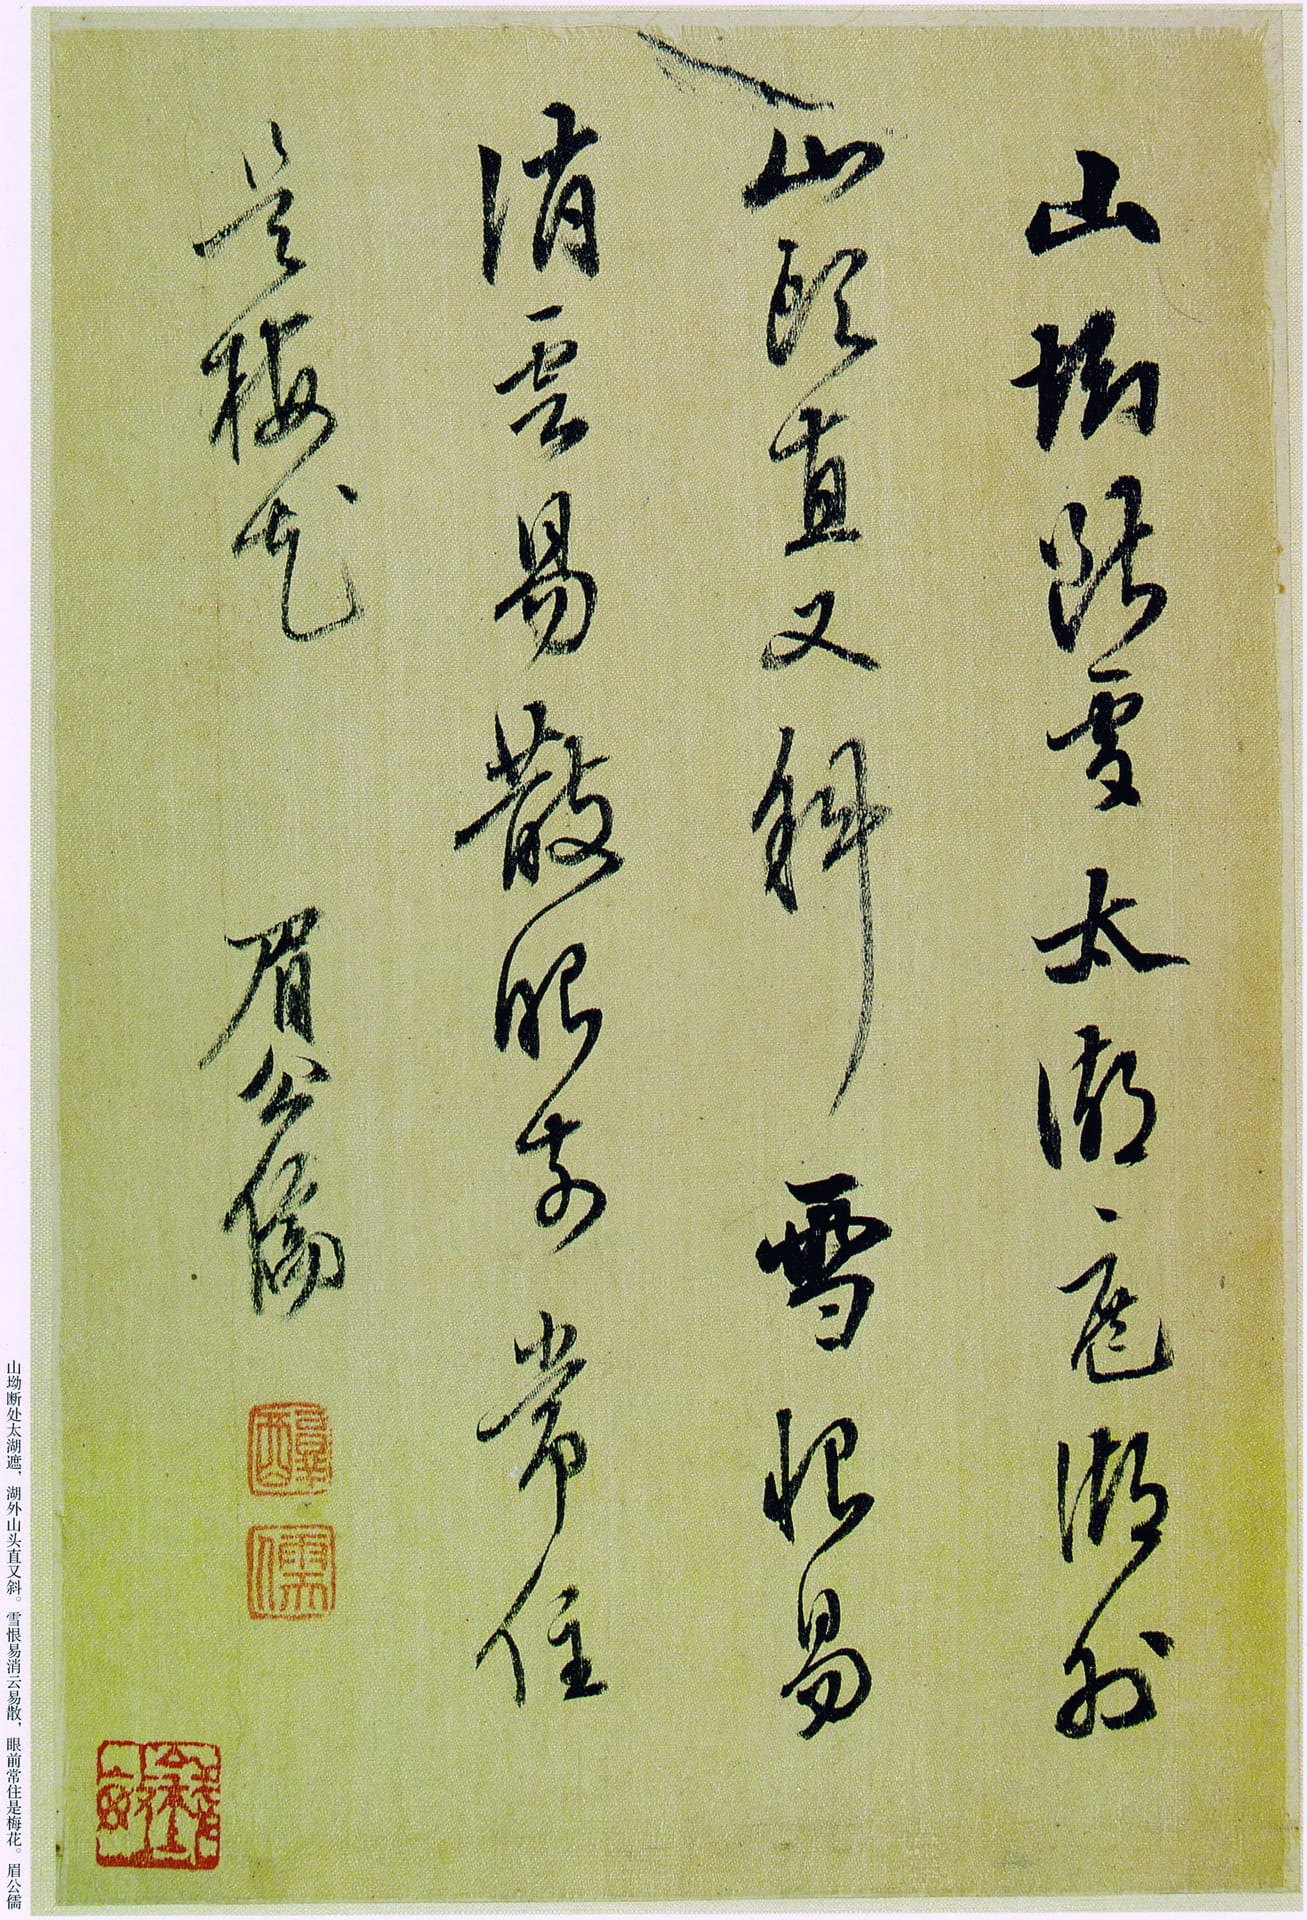 山坳断雲太湖遮湖外
山頭直又斜雪恨易
消雲易散眼前常住
是梅花
眉公儒
醇
儒
山坳断处太湖遮，湖外山头直又斜。雪恨易消云易散，眼前常住是梅花。眉公儒